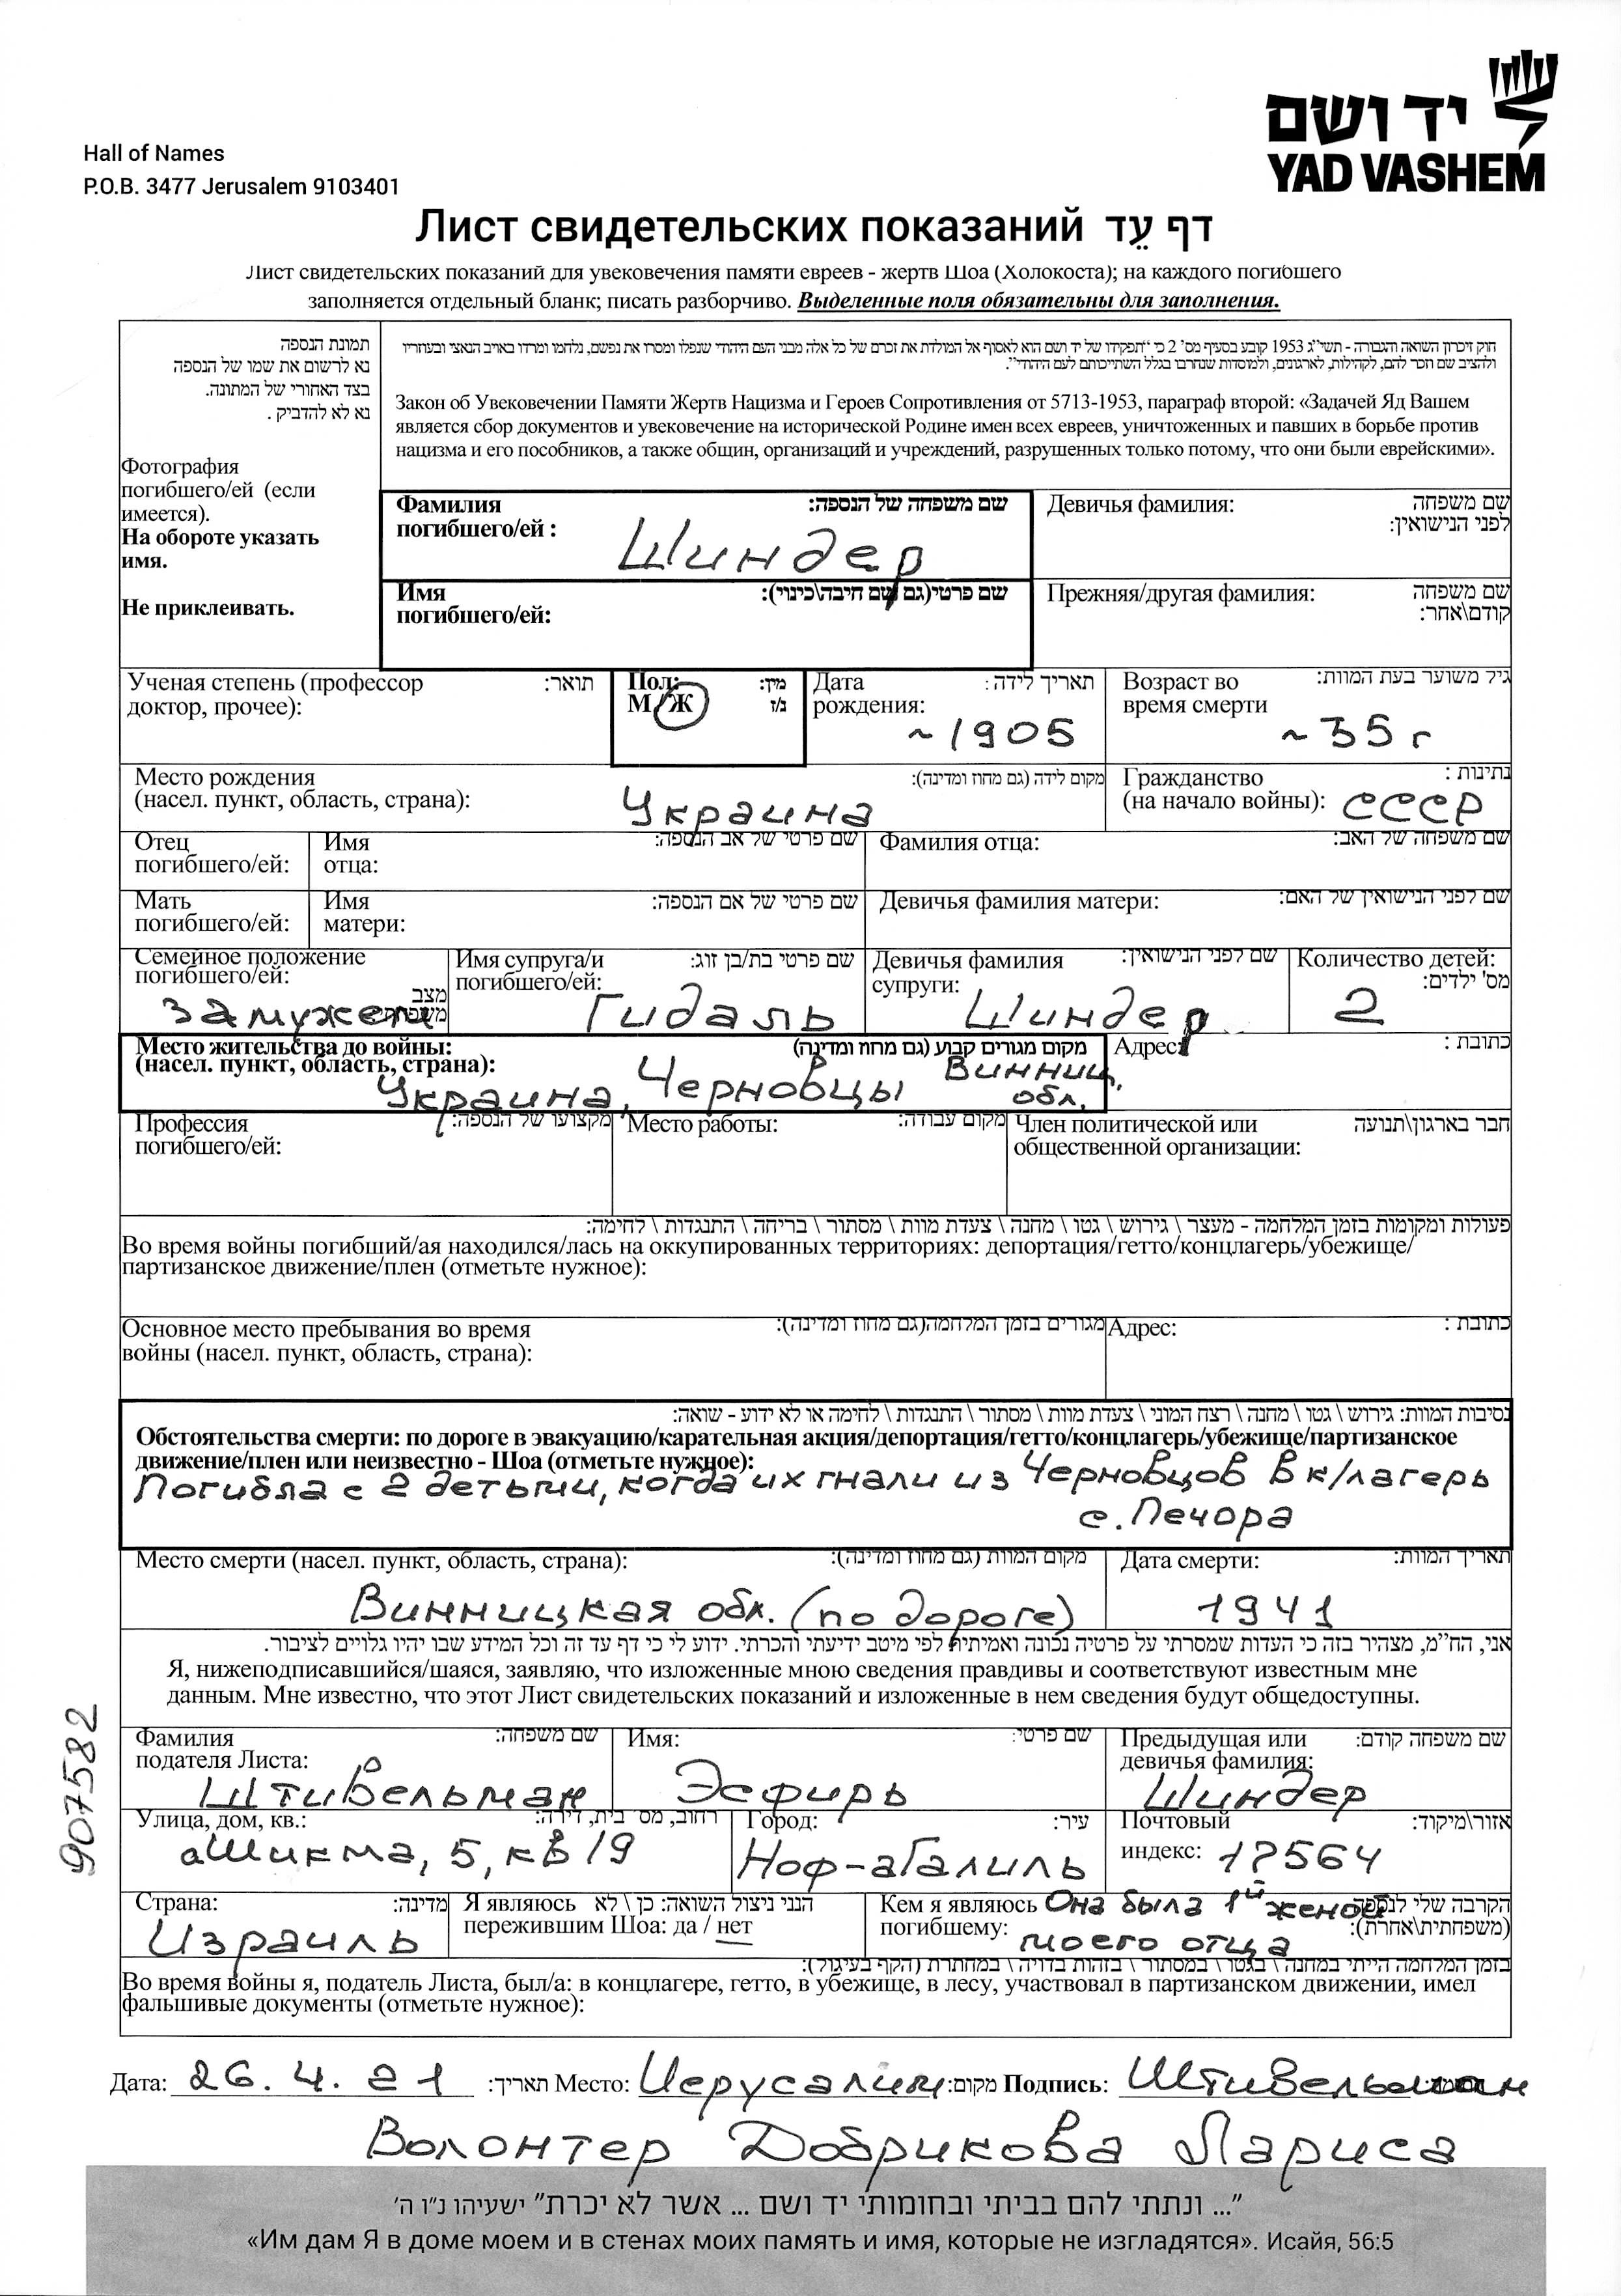 יד ושם
YAD VASHEM
Hall of Names
P.O.B. 3477 Jerusalem 9103401
Лист свидетельских показаний דף עֵד
Лист свидетельских показаний для увековечения памяти евреев - жертв Шоа (Холокоста); на каждого погибшего
заполняется отдельный бланк; писать разборчиво. Выделенные поля обязательны для заполнения.
תמונת הנספה
נא לרשום את שמו של הנספה
בצד האחורי של המתונה.
נא לא להדביק .
Фотография
погибшего/ей (если
имеется).
На обороте указать
имя.
Не приклеивать.
חוק זיכרון השואה והגבורה - תשי"ג 1953 קובע בסעיף מס' 2 כי "תפקידו של יד ושם הוא לאסוף אל המולדת את זכרם של כל אלה מבני העם היהודי שנפלו ומסרו את נפשם, נלחמו ומרדו באויב הנאצי ובעוזריו
ולהציב שם וזכר להם, לקהילות, לארגונים, ולמוסדות שנחרבו בגלל השתייכותם לעם היהודי".
Закон об Увековечении Памяти Жертв Нацизма и Героев Сопротивления от 5713-1953, параграф второй: «Задачей Яд Вашем
является сбор документов и увековечение на исторической Родине имен всех евреев, уничтоженных и павших в борьбе против
нацизма и его пособников, а также общин, организаций и учреждений, разрушенных только потому, что они были еврейскими».
Фамилия שם משפחה של הנספה:
погибшего/ей :
Шиндер
Девичья фамилия: שם משפחה
לפני הנישואין:
Имя שם פרטי(גם שם חיבה\כינוי):
погибшего/ей:
Прежняя/другая фамилия: שם משפחה
קודם\אחר:
Ученая степень (профессор תואר:
доктор, прочее):
Пол: מין:
М/Ж ז/נ
Дата תאריך לידה :
рождения:
~1905
Возраст во גיל משוער בעת המוות:
время смерти
~35 г
Место рождения מקום לידה (גם מחוז ומדינה):
(насел. пункт, область, страна):
Украина
Гражданство נתינות :
(на начало войны): СССР
Отец
погибшего/ей:
Имя שם פרטי של אב הנספה:
отца:
Фамилия отца: שם משפחה של האב:
Мать
погибшего/ей:
Имя שם פרטי של אם הנספה:
матери:
Девичья фамилия матери: שם לפני הנישואין של האם:
Семейное положение
погибшего/ей:
מצב
משפחתי:
замужем
Имя супруга/и שם פרטי בת/בן זוג:
погибшего/ей:
Гидаль
Девичья фамилия שם לפני הנישואין:
супруги:
Шиндер
Количество детей:
מס' ילדים:
2
Место жительства до войны: מקום מגורים קבוע (גם מחוז ומדינה)
(насел. пункт, область, страна):
Украина, Черновцы Винниц.
обл.
Адрес: כתובת :
Профессия מקצועו של הנספה:
погибшего/ей:
Место работы: מקום עבודה:
Член политической или חבר בארגון\תנועה
общественной организации:
פעולות ומקומות בזמן המלחמה - מעצר \ גירוש \ גטו \ מחנה \ צעדת מוות \ מסתור \ בריחה \ התנגדות \ לחימה:
Во время войны погибший/ая находился/лась на оккупированных территориях: депортация/гетто/концлагерь/убежище/
партизанское движение/плен (отметьте нужное):
Основное место пребывания во время מגורים בזמן המלחמה(גם מחוז ומדינה):
войны (насел. пункт, область, страна):
Адрес: כתובת :
נסיבות המוות: גירוש \ גטו \ מחנה \ רצח המוני \ צעדת מוות \ מסתור \ התנגדות \ לחימה או לא ידוע - שואה:
Обстоятельства смерти: по дороге в эвакуацию/карательная акция/депортация/гетто/концлагерь/убежище/партизанское
движение/плен или неизвестно - Шоа (отметьте нужное):
Погибла с 2 детьми, когда их гнали из Черновцов в к/лагерь
с. Печора
Место смерти (насел. пункт, область, страна): מקום המוות (גם מחוז ומדינה):
Винницкая обл. (по дороге)
Дата смерти: תאריך המוות:
1941
אני, הח"מ, מצהיר בזה כי העדות שמסרתי על פרטיה נכונה ואמיתית לפי מיטב ידיעתי והכרתי. ידוע לי כי דף עד זה וכל המידע שבו יהיו גלויים לציבור.
Я, нижеподписавшийся/шаяся, заявляю, что изложенные мною сведения правдивы и соответствуют известным мне
данным. Мне известно, что этот Лист свидетельских показаний и изложенные в нем сведения будут общедоступны.
907582
Фамилия שם משפחה:
подателя Листа:
Штивельман
Имя: שם פרטי:
Эсфирь
Предыдущая или שם משפחה קודם:
девичья фамилия:
Шиндер
Улица, дом, кв.: רחוב, מס' בית, דירה:
аШикма, 5, кв 19
Город: עיר:
Ноф-аГалиль
Почтовый אזור\מיקוד:
индекс: 17564
Страна: מדינה:
Израиль
Я являюсь הנני ניצול השואה: כן \ לא
пережившим Шоа: да / нет
Кем я являюсь הקרבה שלי לנספה
погибшему: (משפחתית\אחרת):
Она была 1й женой
моего отца
בזמן המלחמה הייתי במחנה \ בגטו \ במסתור \ בזהות בדויה \ במחתרת (הקף בעיגול):
Во время войны я, податель Листа, был/а: в концлагере, гетто, в убежище, в лесу, участвовал в партизанском движении, имел
фальшивые документы (отметьте нужное):
Дата: 26.4.21 תאריך: Место: Иерусалим מקום: Подпись: Штивельман
Волонтер Добрикова Лариса
"... ונתתי להם בביתי ובחומותי יד ושם ... אשר לא יכרת" ישעיהו נ"ו ה'
«Им дам Я в доме моем и в стенах моих память и имя, которые не изгладятся». Исайя, 56:5